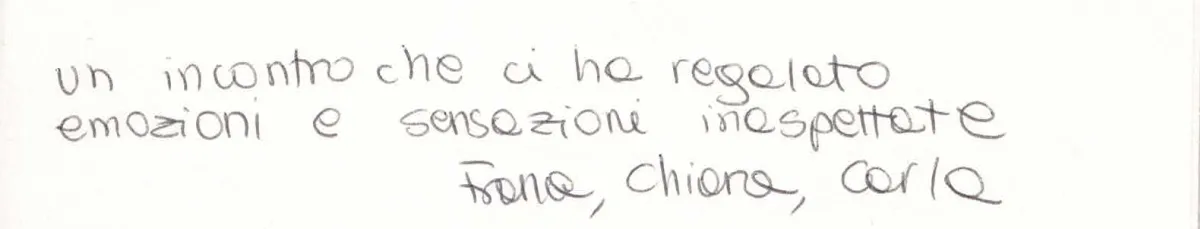 un incontro che ci ha regalato
emozioni e sensazioni inaspettate
Frana, Chiara, Carla